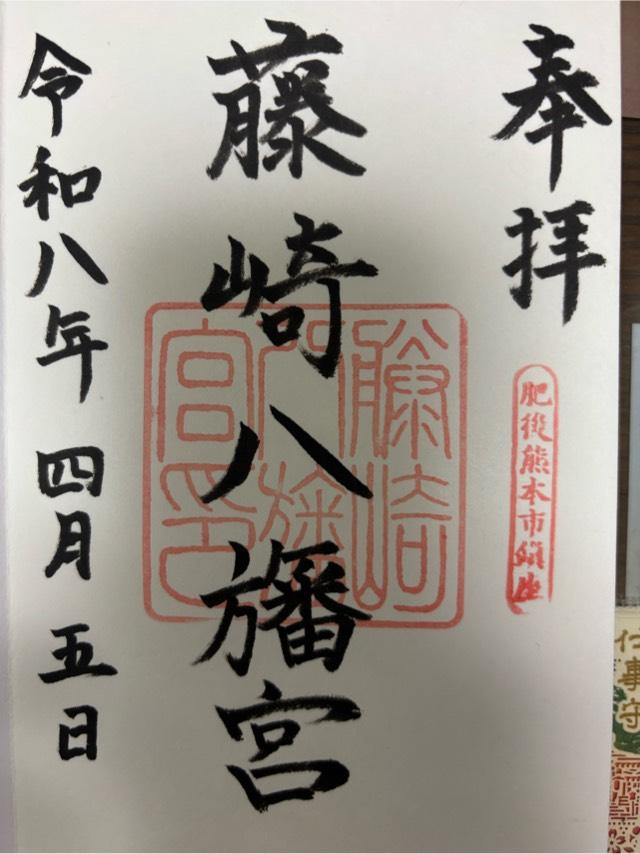 奉拝
肥後熊本市鎮座
藤崎八旛宮
藤崎八旛宮印
令和八年四月五日
仕事守